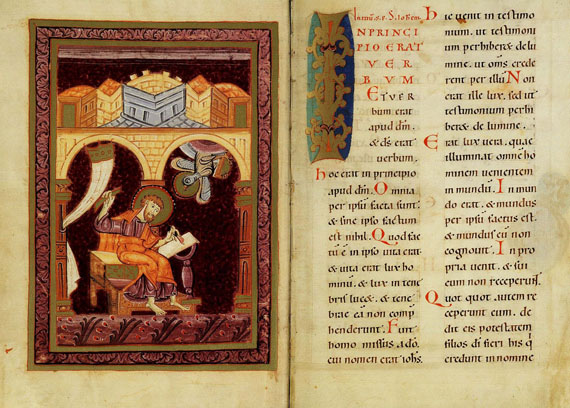 INPRINCI
PIO ERAT
VER
BVM
ET VER
bum erat
apud dm̄.
& ds̄ erat
verbum.
hoc erat in principio
apud dm̄. Omnia
per ipsū facta sunt.
& sine ipso factum
est nihil. Quod fac
tū ē in ipso vita erat.
& vita erat lux ho
minū. & lux in tene
bris luc&. & tene
brae eā non comp
henderunt. Fuit
homo missus a dō.
cui nomen erat iohs̄.
hic venit in testimo
nium. ut testimoni
um perhiber& de lu
mine. ut om̄s crede
rent per illū. Non
erat ille lux. sed ut
testimonium perhi
ber& de lumine.
Erat lux vera. quae
illuminat omnē ho
minem venientem
in mundū. In mun
do erat. & mundus
per ipsū factus est.
& mundus eū non
cognouit. In pro
pria venit. & sui
eum non receperunt.
Quot quot autem re
ceperunt eum. de
dit eis potestatem
filios dī fieri his q
credunt in nomine